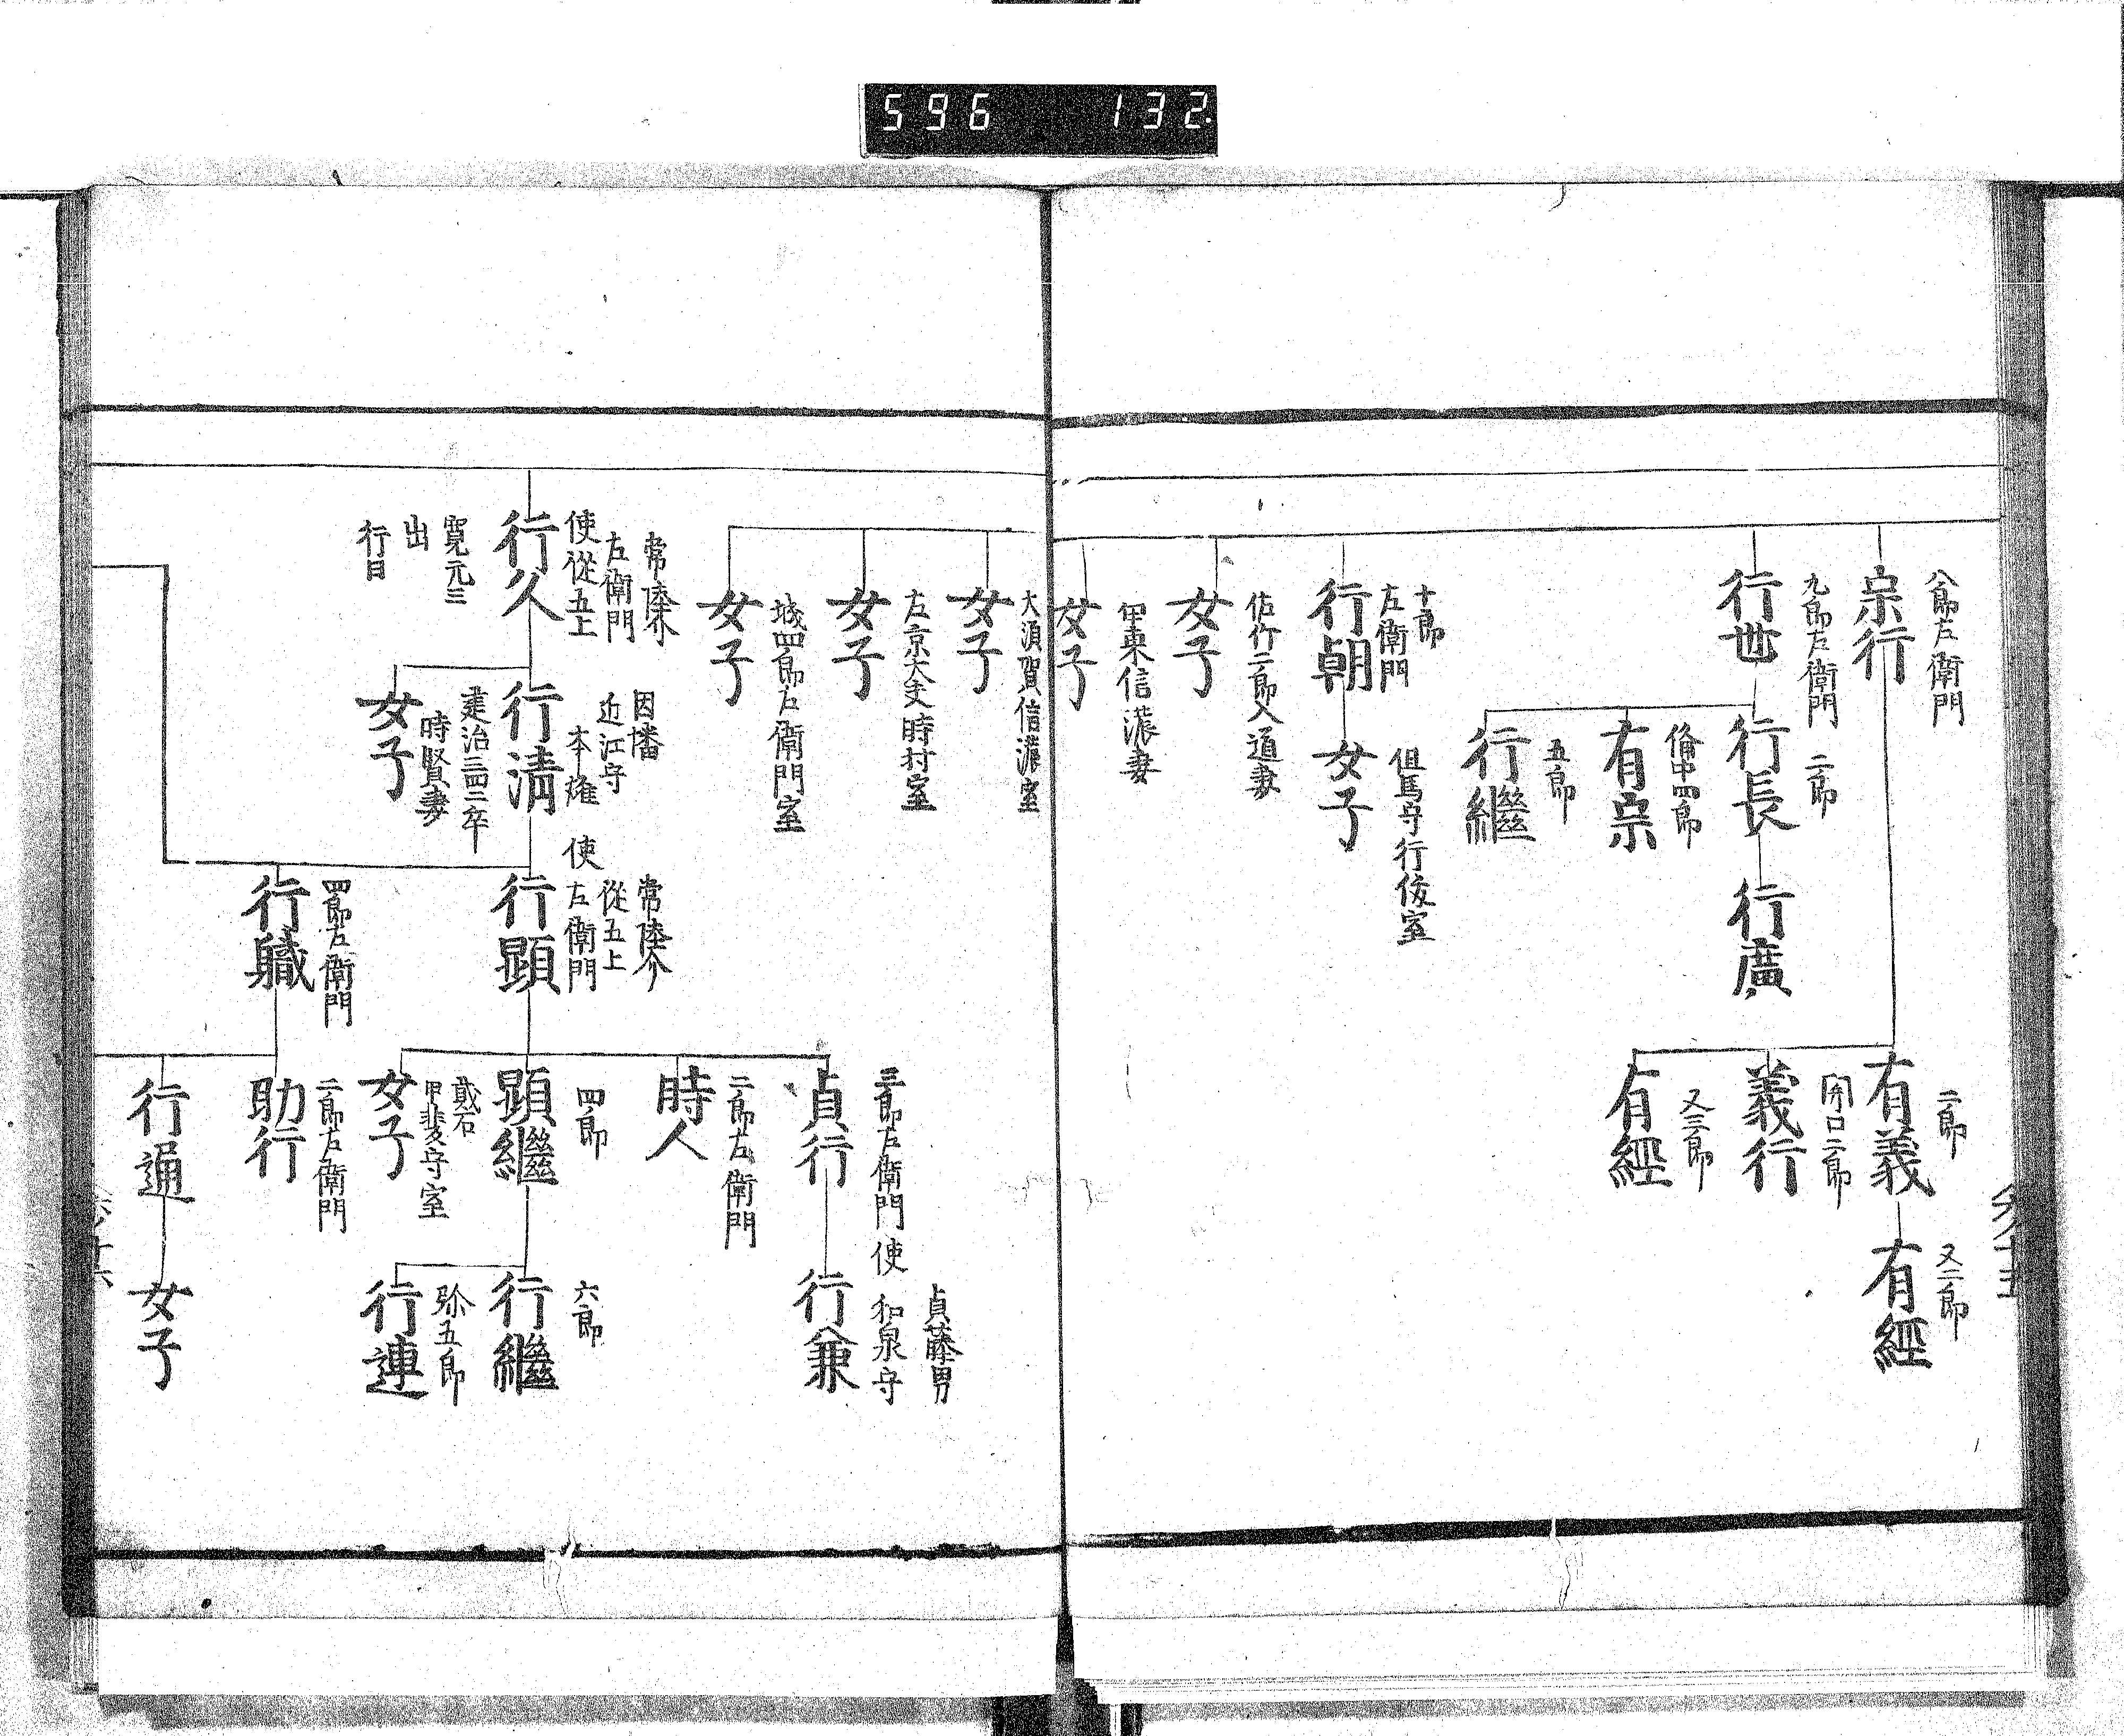 596 132
八郎左衛門
宗行
二郎
有義
又二郎
有經
開口二郎
義行
又三郎
有經
九郎左衛門
行世
二郎
行長
行廣
備中四郎
有宗
五郎
行繼
十郎
左衛門
行朝
但馬守行俊室
女子
佐竹二郎入道妻
女子
甲東信濃妻
女子
大須賀信濃室
女子
左京大夫時村室
女子
城四郎左衛門室
女子
常陸介
左衛門
使從五上
行久
寛元三
出
行日
因幡
近江守
本雄
行清
建治三四二卒
時賢妻
女子
常陸介
從五上
使左衛門
行顕
三郎左衛門 使
貞行
貞藤男
和泉守
行兼
二郎左衛門
時人
四郎
顕繼
六郎
行繼
弥五郎
行連
甲斐守室
女子
四郎左衛門
行職
二郎左衛門
助行
行通
女子